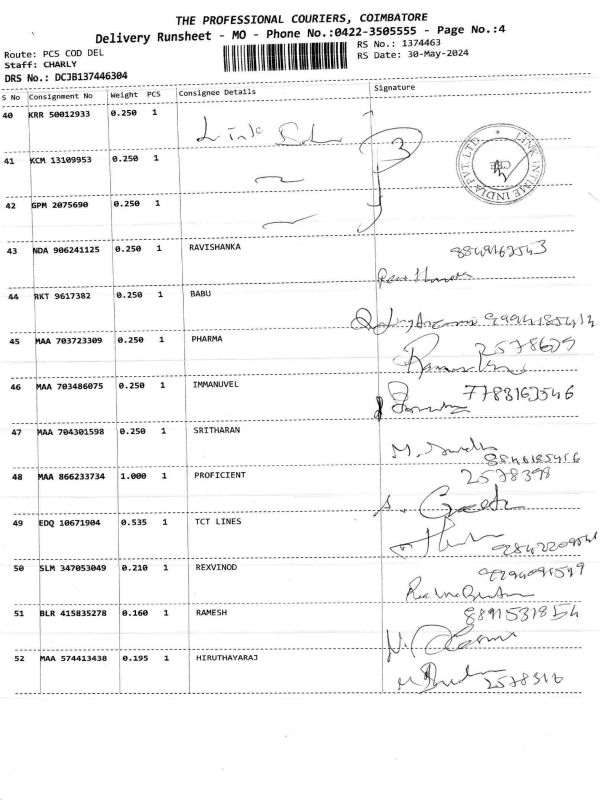 THE PROFESSIONAL COURIERS, COIMBATORE
Delivery Runsheet - MO - Phone No.:0422-3505555 - Page No.:4
Route: PCS COD DEL
RS No.: 1374463
Staff: CHARLY
RS Date: 30-May-2024
DRS No.: DCJB137446304
S No Consignment No Weight PCS Consignee Details Signature
40 KRR 50012933 0.250 1
41 KCM 13109953 0.250 1
LINK INTIME INDIA PVT. LTD.
CBE
42 GPM 2075690 0.250 1
43 NDA 906241125 0.250 1 RAVISHANKA
44 RKT 9617382 0.250 1 BABU
45 MAA 703723309 0.250 1 PHARMA
46 MAA 703486075 0.250 1 IMMANUVEL
7783163546
47 MAA 704301598 0.250 1 SRITHARAN
48 MAA 866233734 1.000 1 PROFICIENT
2578398
49 EDQ 10671904 0.535 1 TCT LINES
50 SLM 347053049 0.210 1 REXVINOD
51 BLR 415835278 0.160 1 RAMESH
52 MAA 574413438 0.195 1 HIRUTHAYARAJ
2578316